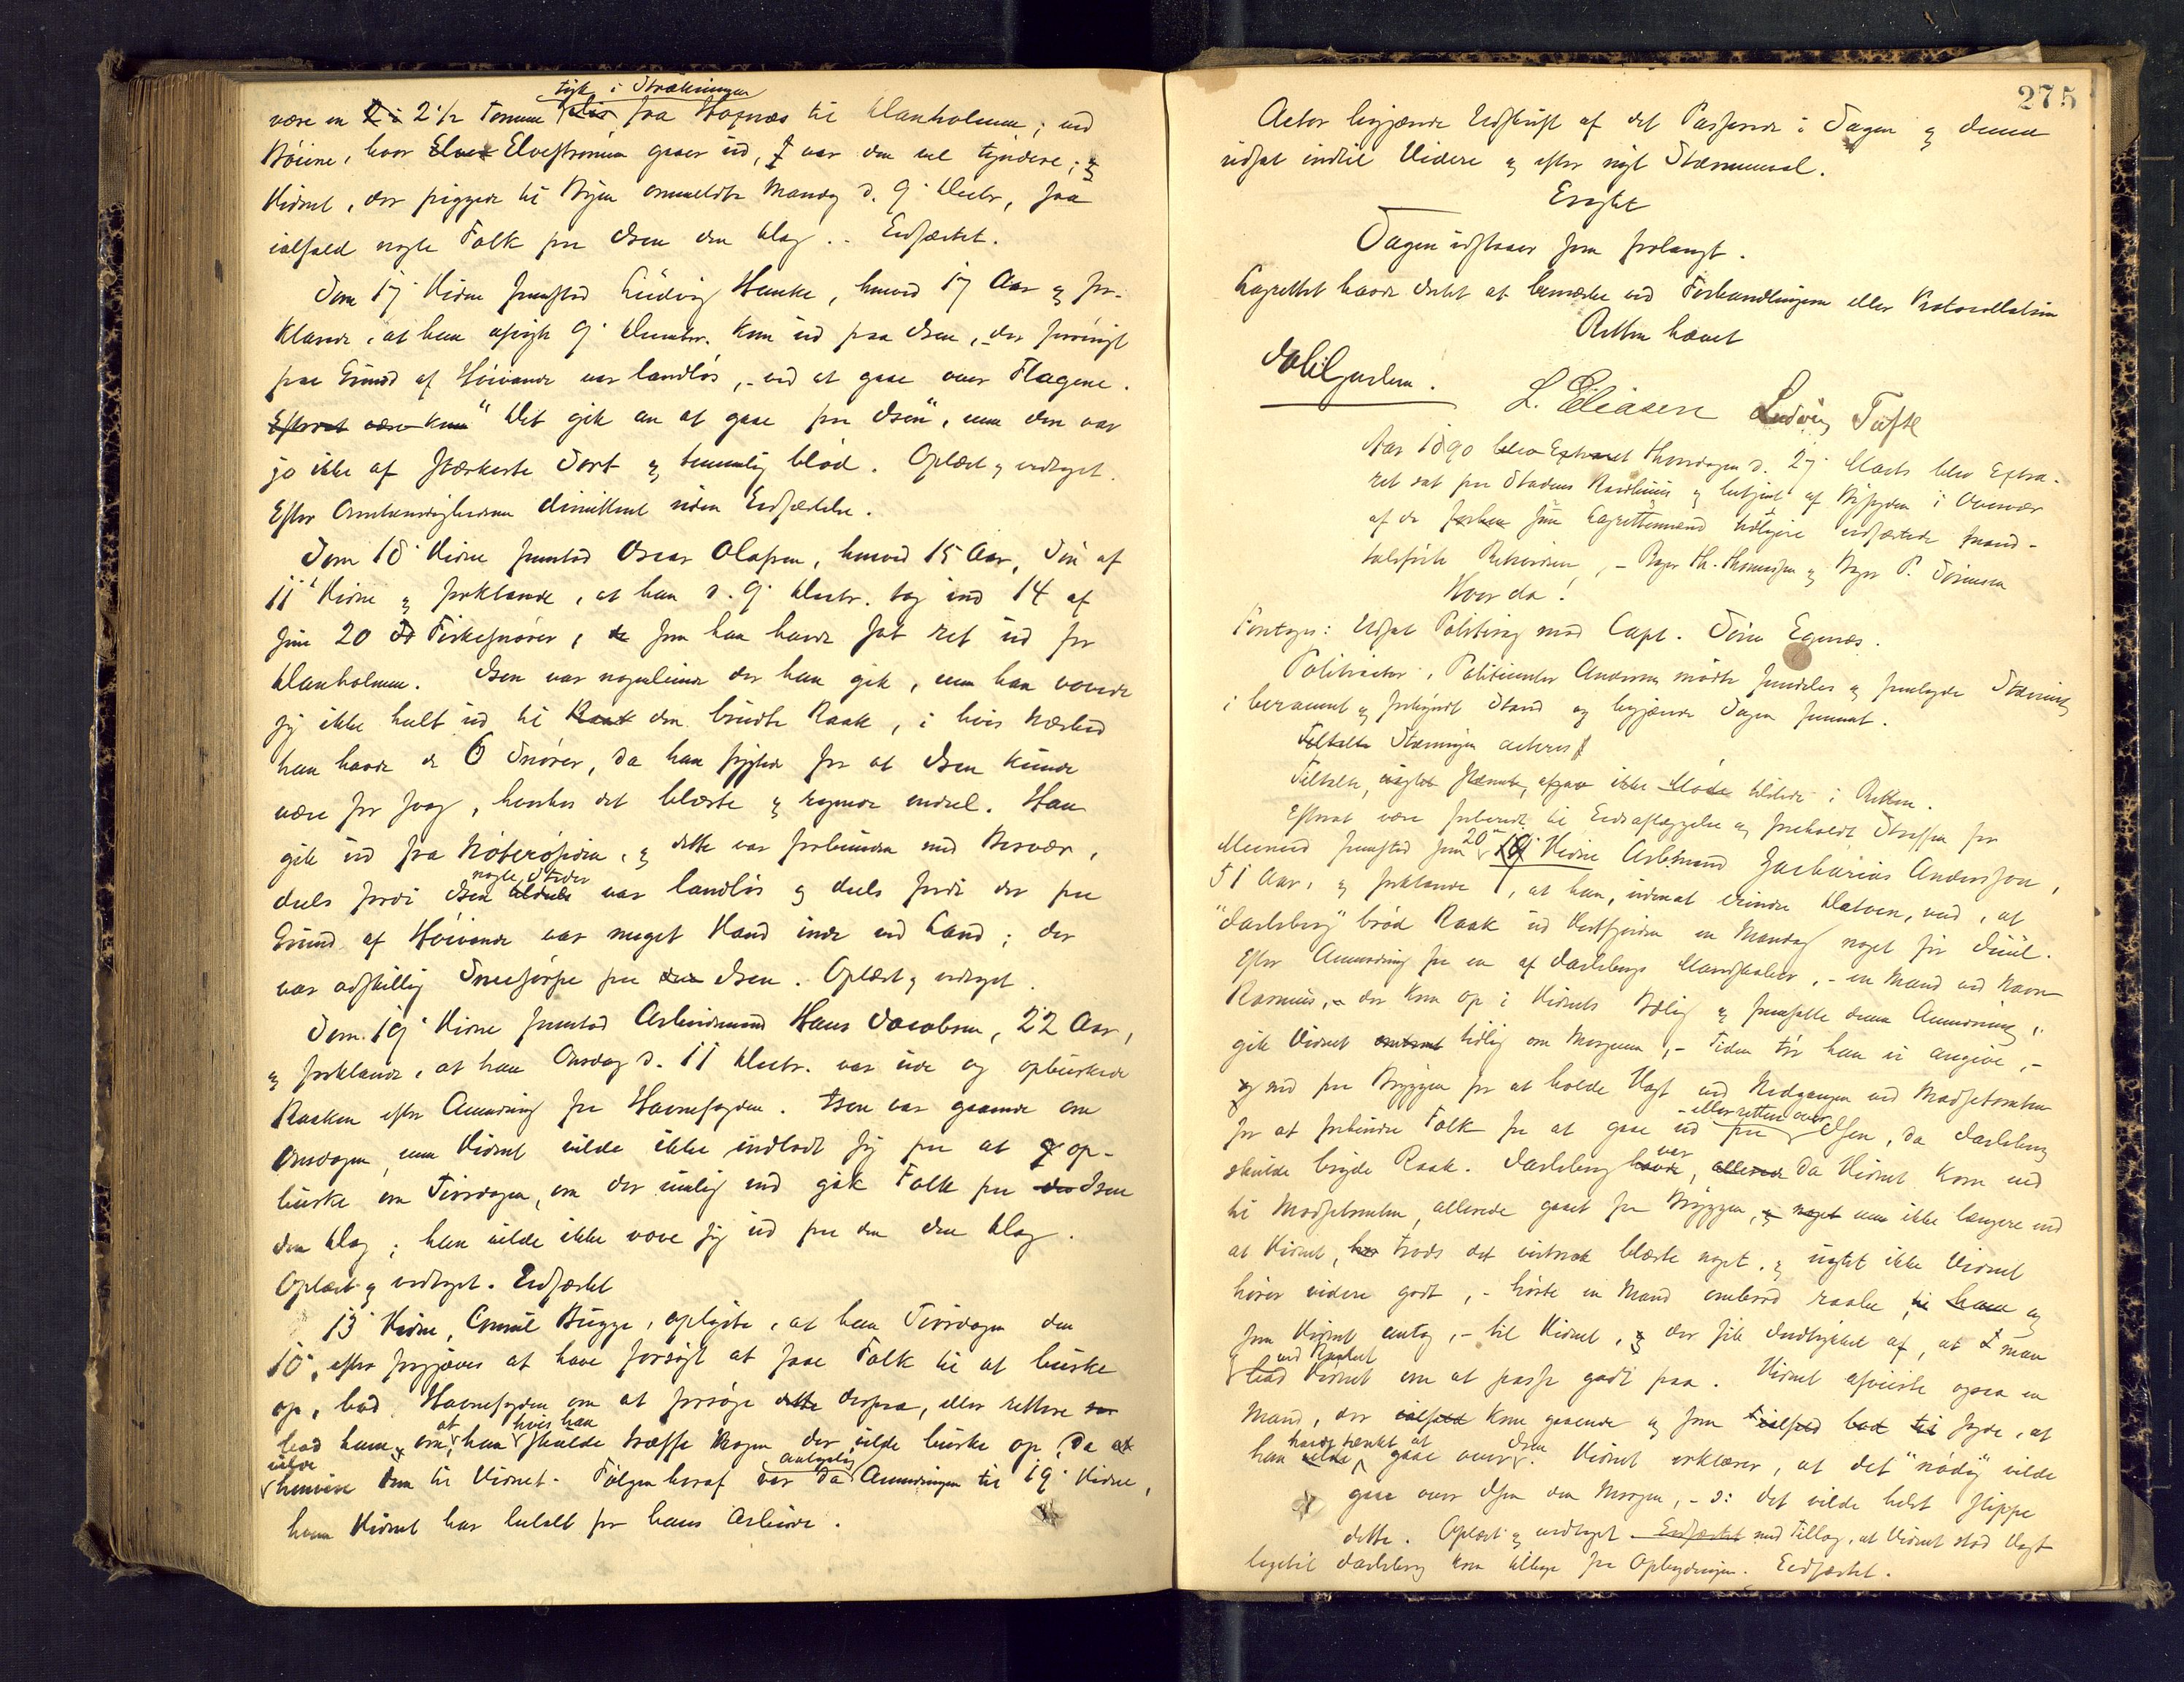 tyk i Strækningen
være en 2 à 2 1/2 Tomme Is fra Hoxnæs til Danholmen; ud
Böiene, hvor Elves Elvestrømmen gaaer ud, var den vel tyndere; og
Vidnet, der piggede til Byen anmeldte Mandag d. 9. Decbr, saa
ialfald nogle Folk paa Isen den Dag. Edfæstet.
Som 17. Vidne fremstod Ludvig Hanke, henved 17 Aar og for-
klarede, at han afvigte 9. December kom ud paa Isen, der forøvrigt
paa Grund af Höivande var landlös, ved at gaae over Flagene.
Efterat være kom "Det gik an at gaae paa Isen", men den var
jo ikke af stærkeste Sort og temmelig blöd. Oplæst og vedtaget.
Efter Omstændighederne dimitteret uden Edfæstelse.
Som 18. Vidne fremstod Oscar Olafsen, henved 15 Aar, Sön af
11te Vidne og forklarede, at han d. 9. Decbr. tog ind 14 af
sine 20 Fiskesnører, som han havde sat ret ud for
Danholmen. Isen var nogenlunde der han gik, men han vovede
sig ikke helt ud til Raak den brudte Raak, i hvis Nærhed
han havde de 6 Snører, da han frygtede for at Isen kunde
være for svag, henset det blæste og regnede endel. Han
gik ud fra Nöterösiden, og dette var forbunden med Besvær,
nogle Steder
deels fordi Isen var landlös og deels fordi der paa
Grund af Höivande var meget Vand inde ved Land; der
var adskillig Sneesörpe paa den Isen. Oplæst og vedtaget.
Som 19. Vidne fremstod Arbeidsmand Hans Jacobsen, 22 Aar,
og forklarede, at han Onsdag d. 11 Decbr. var ude og opbuskede
Raaken efter Anmodning fra Havnefogden. Isen var gaaende om
Onsdagen, men Vidnet vilde ikke indladt sig paa at op-
buske om Tirsdagen, om der rimelig end gik Folk paa den Isen
den Dag; han vilde ikke vove sig ud paa den den Dag.
Oplæst og vedtaget. Edfæstet
13. Vidne, Consul Bugge, oplyste, at han Tirsdagen den
10, efter forgjæves at have forsögt at faae Folk til at buske
op, bad Havnefogden om at forsöge dette derpaa, eller rettere
at hvis han
bad ham, om han skulde træffe Nogen der vilde buske op, da at
vilde antagelig
henvise dem til Vidnet. Fölgen heraf var da Anmodningen til 19. Vidne,
hvem Vidnet har betalt for hans Arbeide.
275
Actor begjærede Udskrift af det Passerede i Sagen og denne
udsat indtil Videre og efter nyt Stævnemaal.
Eragtet
Sagen udstaaer som forlangt.
Lagrettet havde Intet at bemærke ved Forhandlingen eller Protocollationen
Retten hævet
L. Eliasen Ludvig Tufte
Aar 1890 blev Extraret Thorsdagen d. 27. Marts blev Extra-
ret sat paa Stadens Raadhuus og betjent af Byfogden i Overvær
af de forhen sine Lagrettemænd tidligere edfæstede Mand-
talsførte Rettsvidner, Bager Th. Thomassen og Bager P. Sörensen
Hvor da!
Foretoges: Udsat Politisag mod Capt. Sören Egenæs.
Politiactor, Politimester Andersen mödte fremdeles og fremlagde Stævning
i beramet og forkyndt Stand og begjærede Sagen fremmet.
Tiltalte Stævningen acteres
Tiltalte, stævnet, ikke Möde tilstede i Retten.
Efterat være forberedt til Edsaflæggelse og foreholdt Straffen for
20de
Meened fremstod som 18. Vidne Arbmand Zacharias Anderssen,
51 Aar, og forklarede, at han, uden at erindre Datoen, ved, at
"Jarlsberg" bröd Raak ud Vestfjorden en Mandag noget før Juul.
Efter Anmodning fra en af Jarlsbergs Mandskaber, en Mand ved Navn
Rasmus, der kom op i Vidnets Bolig og fremsatte denne Anmodning,
gik Vidnet tidlig om Morgenen, Tiden tör han ei angive,
og ned paa Bryggen for at holde Vagt ved Nedgangen ved Madsetomten
eller rettere over
for at forhindre Folk fra at gaae ud paa Isen, da Jarlsberg
var
skulde bryde Raak. Jarlsberg havde, allerede da Vidnet kom ned
til Madsetomten, allerede gaaet fra Bryggen, men ikke længere end
at Vidnet, trods det blæste noget, og uagtet ikke Vidnet
hörer videre godt, hörte en Mand ombord raabe og
som Vidnet antog, til Vidnet, der fik Indtrykket af, at man
ved Raabet
bad Vidnet om at passe godt paa. Vidnet afviiste ogsaa en
Mand, der kom gaaende og som sagde, at
havde tænkt at Isen
han vilde gaae over. Vidnet erklærer, at det "nödig" vilde
gaae over Isen den Morgen, ɔ: det vilde helst slippe
dette. Oplæst og vedtaget. Edfæstet med Tillæg, at Vidnet stod Vagt
ligetil Jarlsberg kom tilbage fra Opbrydningen. Eedfæstet.